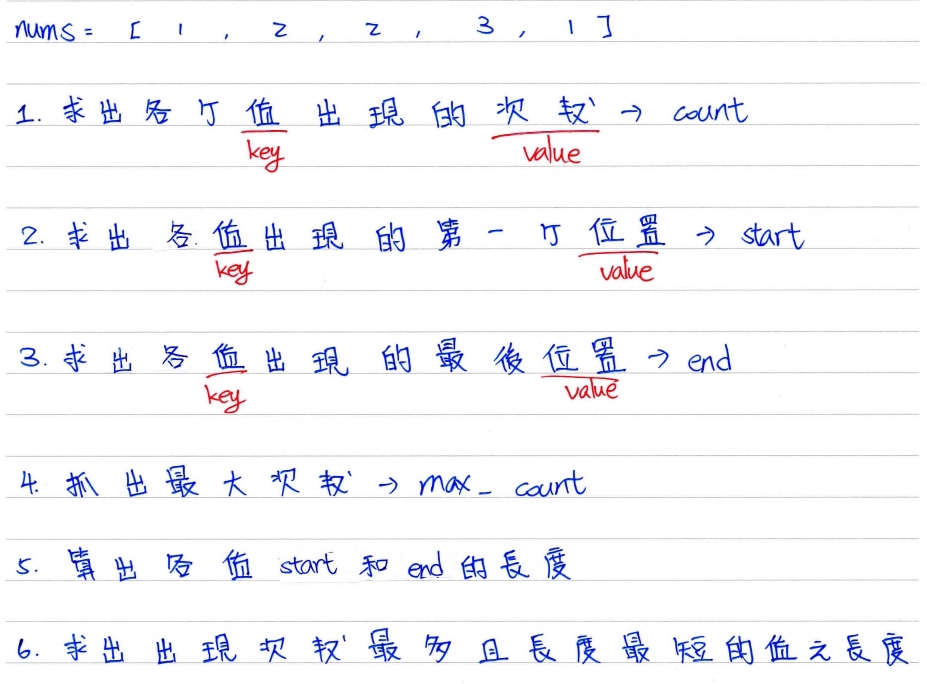 nums = [ 1 , 2 , 2 , 3 , 1 ]
1. 求出各个值出現的次数 → count
key value
2. 求出各值出現的第一个位置 → start
key value
3. 求出各值出現的最後位置 → end
key value
4. 抓出最大次数 → max_count
5. 算出各值 start 和 end 的長度
6. 求出出現次数最多且長度最短的值之長度